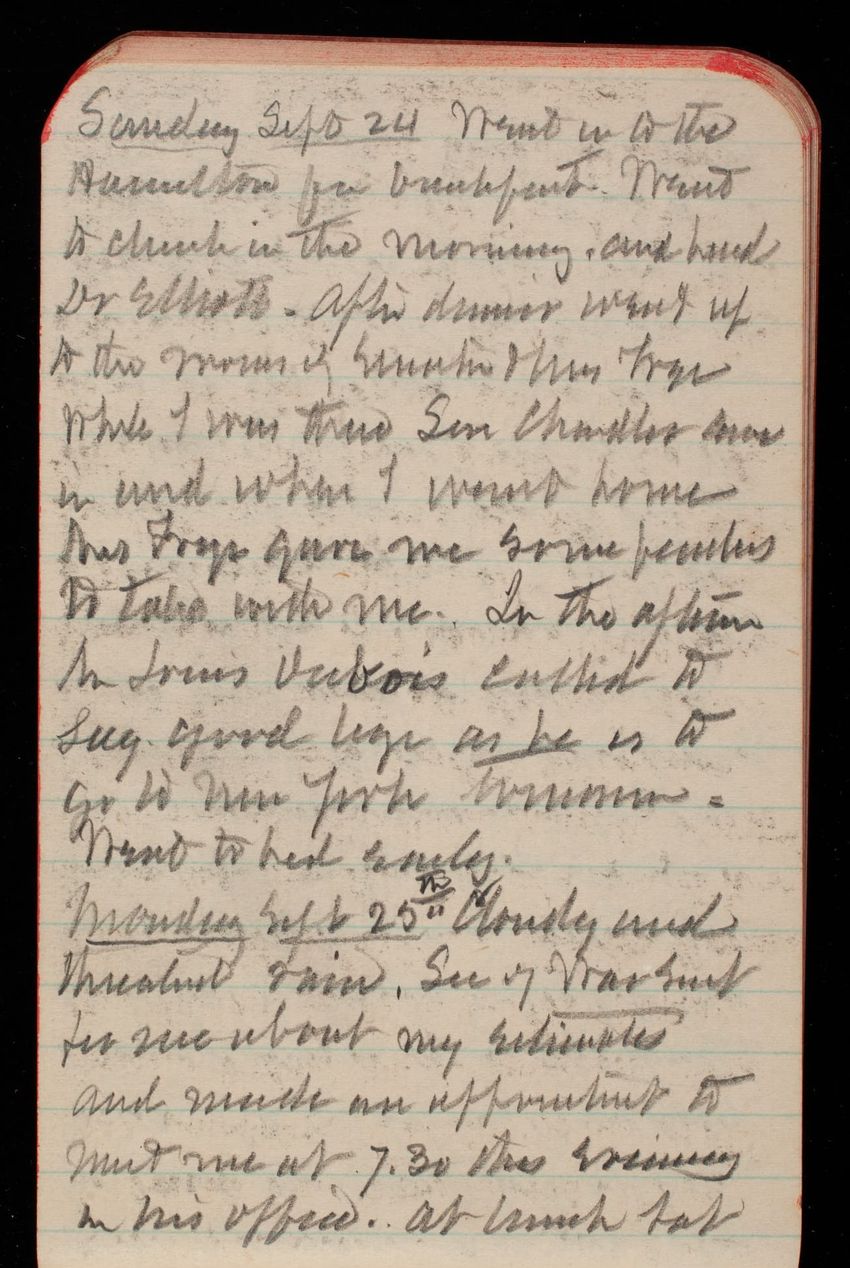 Sunday Sept 24 Went in to the
Hamilton for breakfast. Went
to church in the morning, and heard
Dr Elliott. After dinner went up
to the rooms of Senator & Mrs Frye
While I was there Sen Chandler came
in and when I went home
Mrs Frye gave me some peaches
to take with me. In the aftern
Mr Louis Dubois called to
say good bye as he is to
go to New York tomorrow =
Went to bed early.
Monday Sept 25th Cloudy and
threatend rain. Sec of War sent
for me about my estimates
and made an appointmt to
meet me at 7.30 this evening
in his office. At lunch sat